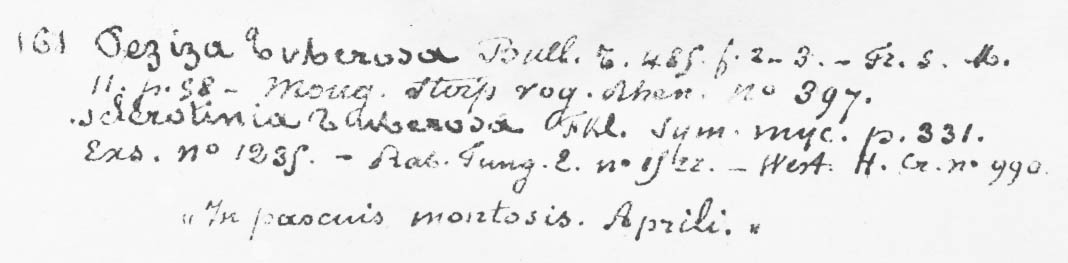 161 Peziza tuberosa Bull. t. 485. f. 2-3. - Fr. S. M.
II. p. 58 - Moug. Stirp vog. rhen. no 397.
Sclerotinia tuberosa Fkl. Sym. myc. p. 331.
Exs. no 1235. - Rab. Fung. E. no 1522. - West. H. Cr. no 990.
"In pascuis montosis. Aprili."